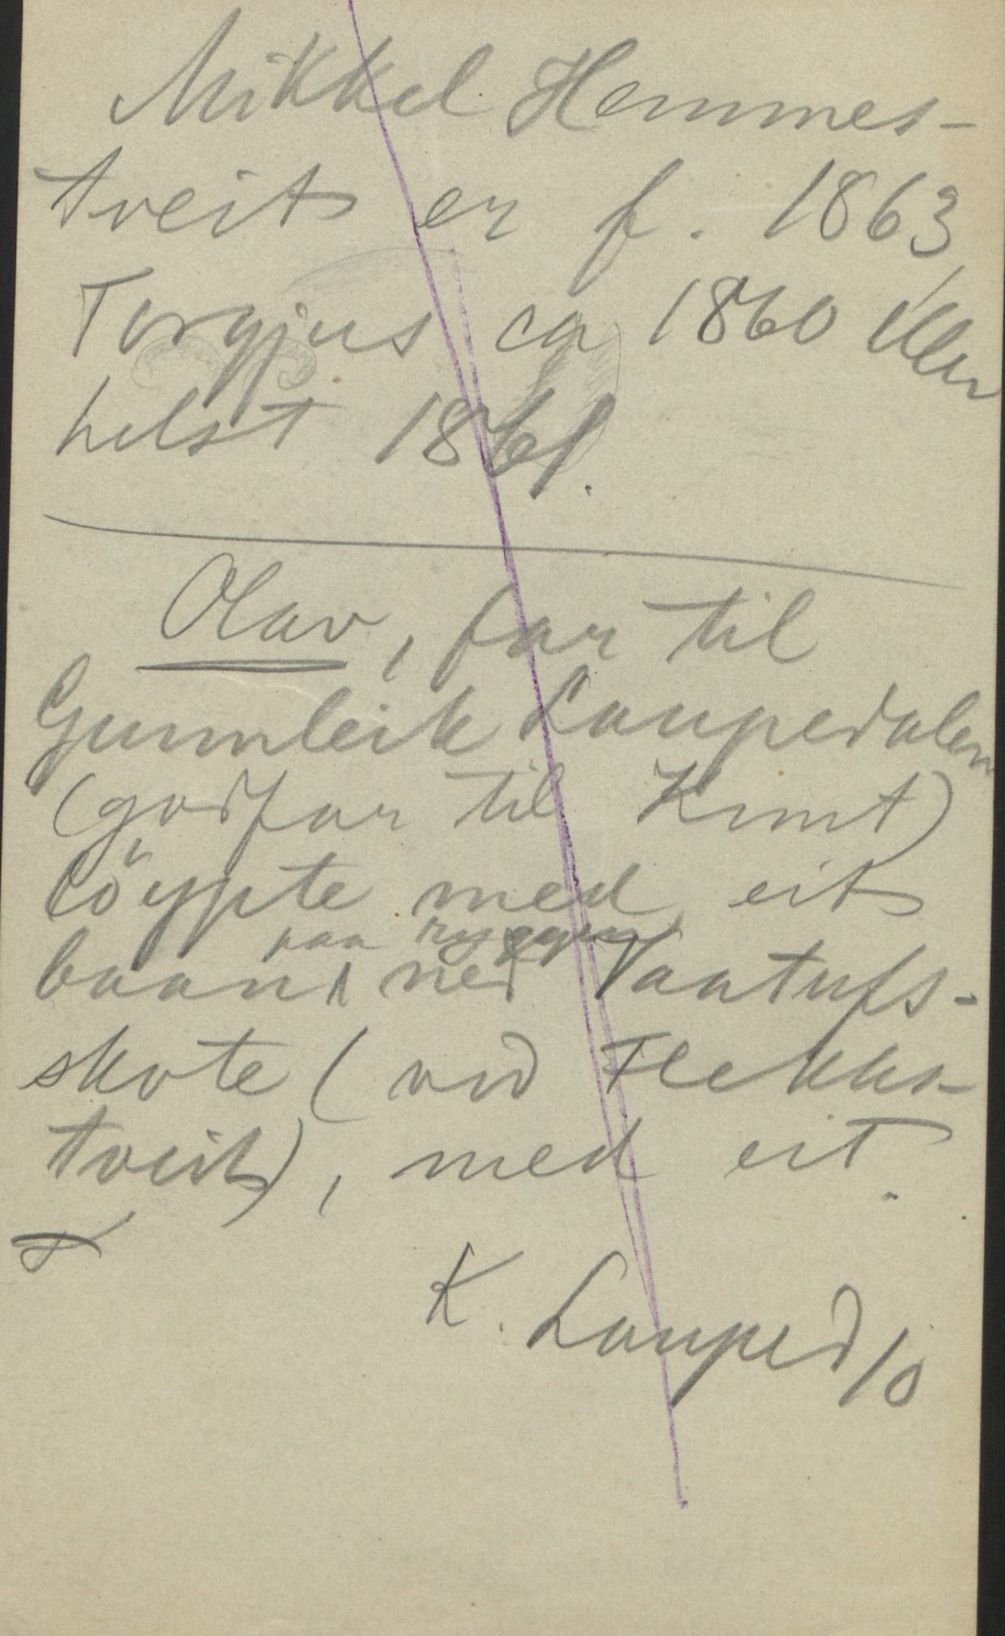 Mikkel Hemmes-
tveit er f. 1863,
Torgjus ca 1860 eller
helst 1861.
Olav, far til
Gunnleik Laupedalen
(godfar til Knut)
löypte med eit
baan paa ryggen ned Vaatufs-
skote (ved Flekke-
tveit), med eit.
K. Lauped /o